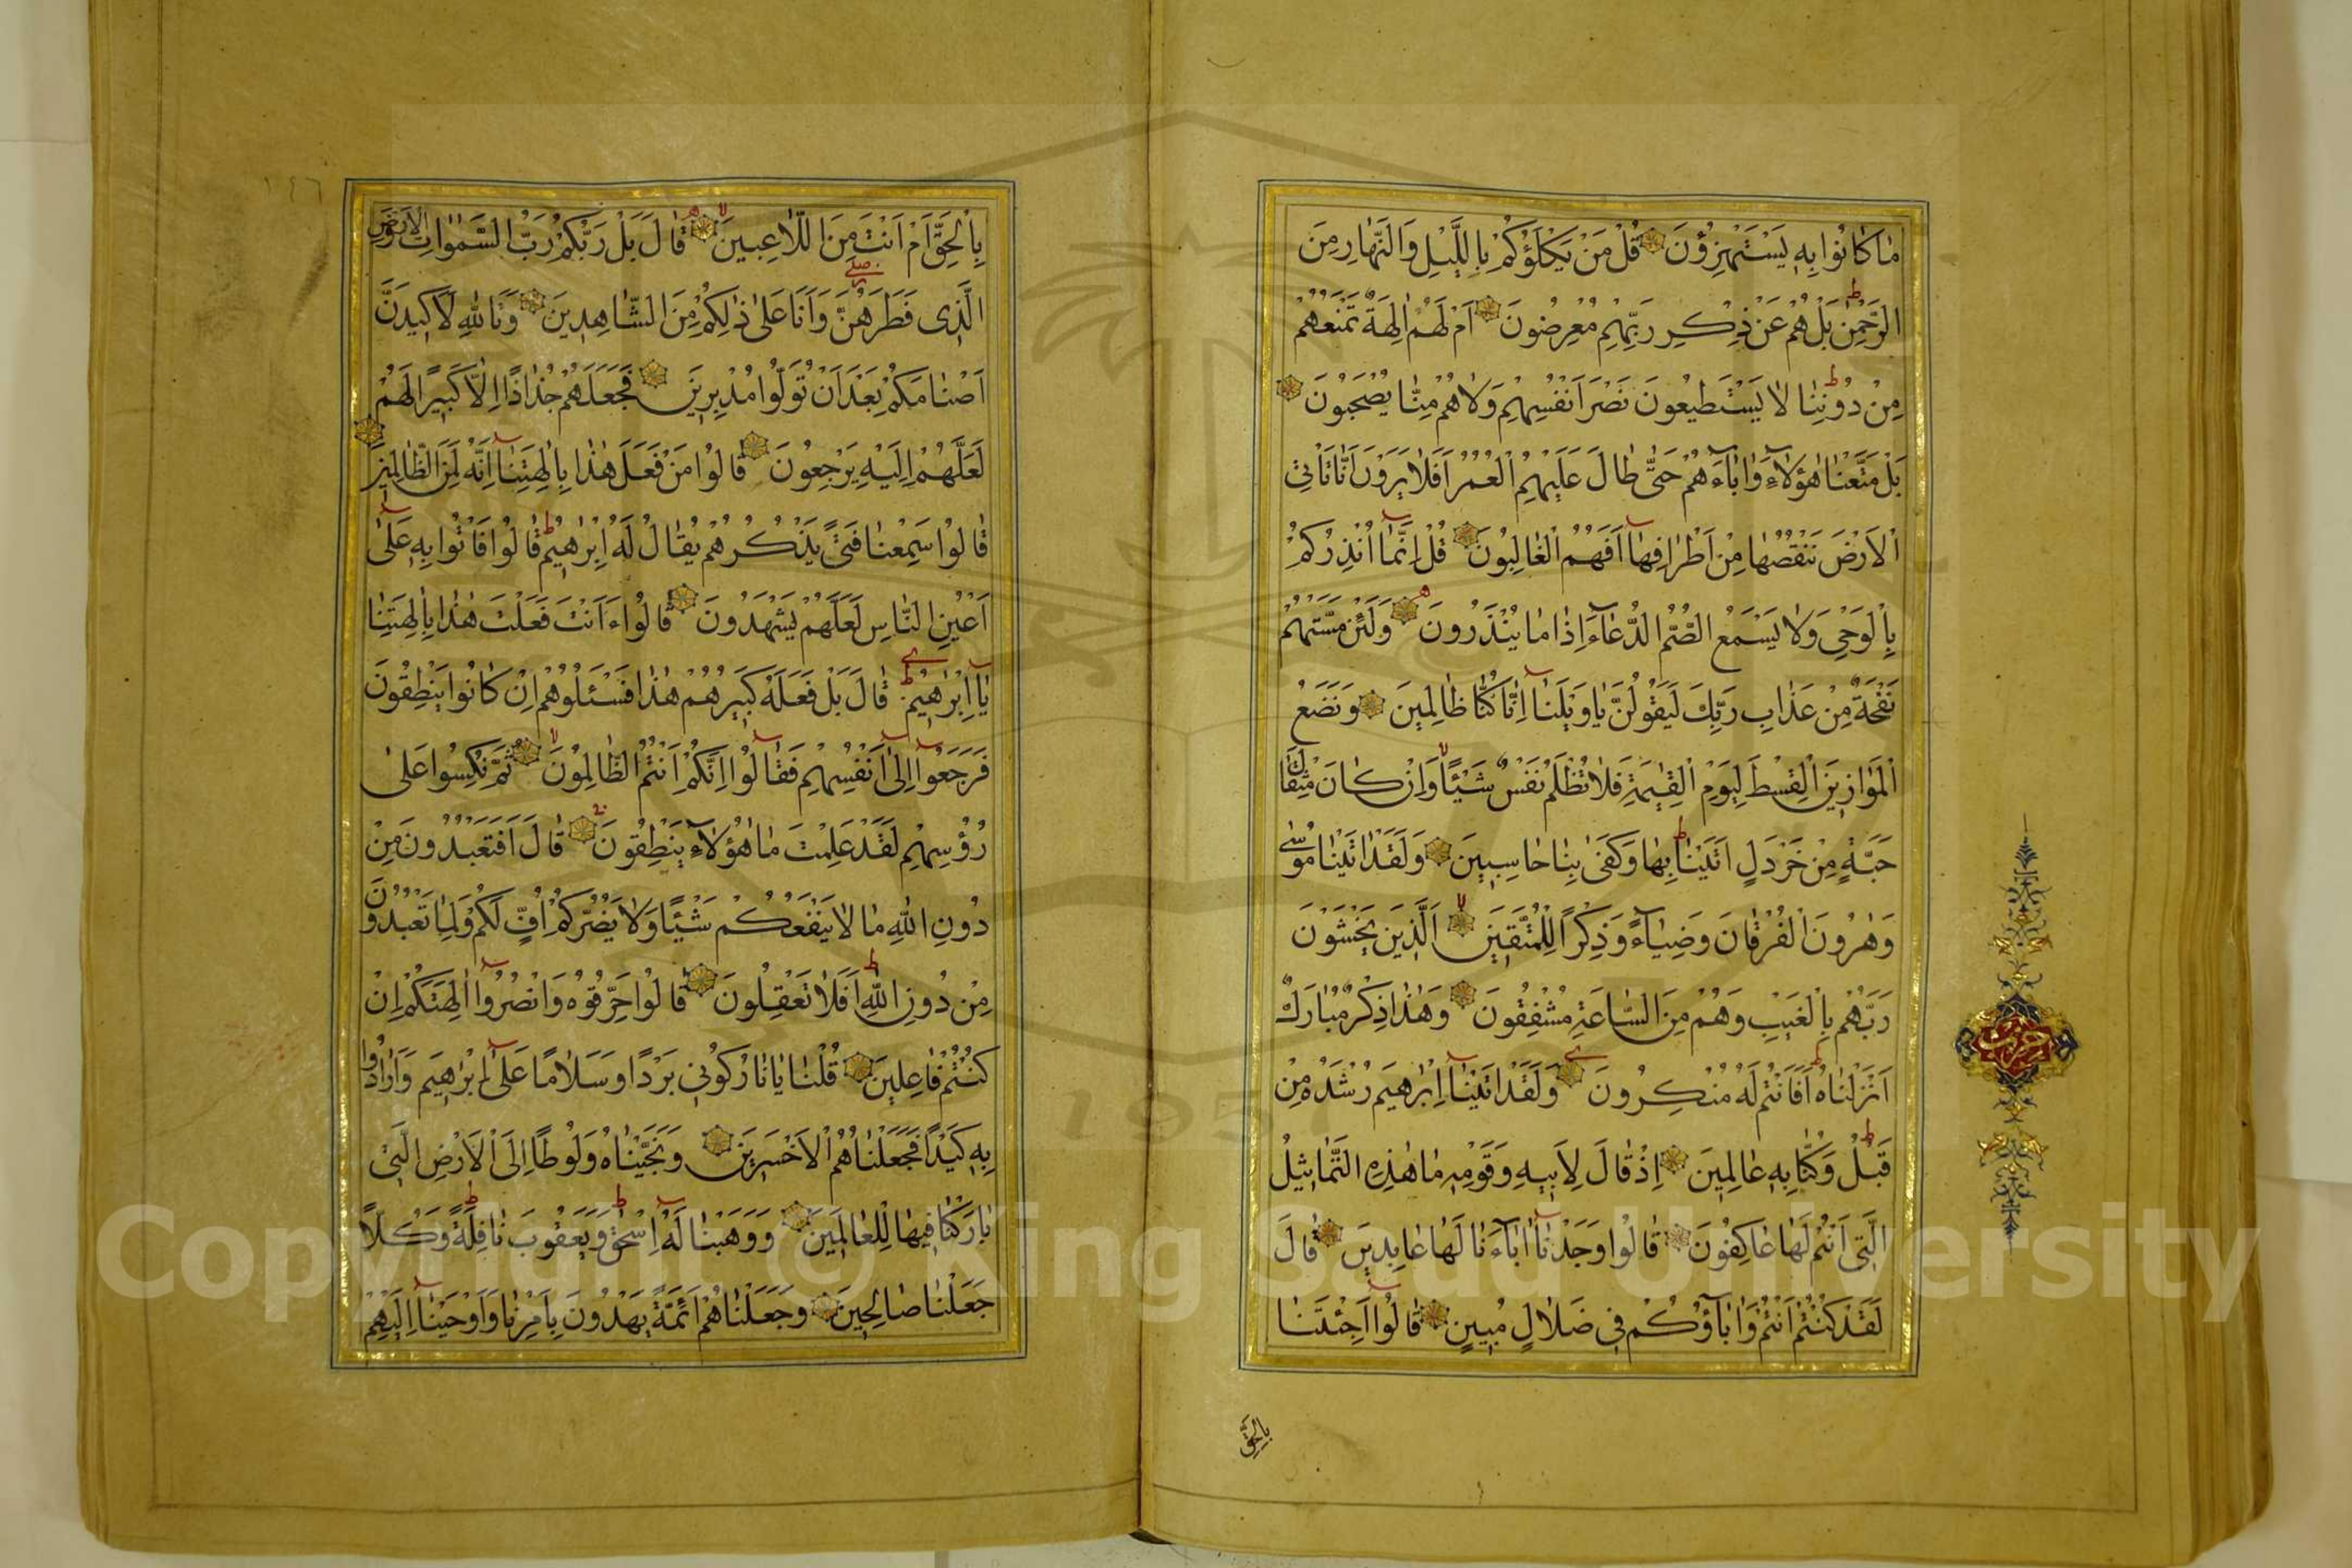 مَا كَانُوا بِهِ يَسْتَهْزِؤُنَ قُلْ مَنْ يَكْلَؤُكُمْ بِاللَّيْلِ وَالنَّهَارِ مِنَ
الرَّحْمٰنِ بَلْ هُمْ عَنْ ذِكْرِ رَبِّهِمْ مُعْرِضُونَ اَمْ لَهُمْ اٰلِهَةٌ تَمْنَعُهُمْ
مِنْ دُونِنَا لَا يَسْتَطِيعُونَ نَصْرَ اَنْفُسِهِمْ وَلَا هُمْ مِنَّا يُصْحَبُونَ
بَلْ مَتَّعْنَا هٰؤُلَاءِ وَاٰبَاءَهُمْ حَتّٰى طَالَ عَلَيْهِمُ الْعُمُرُ اَفَلَا يَرَوْنَ اَنَّا نَأْتِي
الْاَرْضَ نَنْقُصُهَا مِنْ اَطْرَافِهَا اَفَهُمُ الْغَالِبُونَ قُلْ اِنَّمَا اُنْذِرُكُمْ
بِالْوَحْيِ وَلَا يَسْمَعُ الصُّمُّ الدُّعَاءَ اِذَا مَا يُنْذَرُونَ وَلَئِنْ مَسَّتْهُمْ
نَفْحَةٌ مِنْ عَذَابِ رَبِّكَ لَيَقُولُنَّ يَا وَيْلَنَا اِنَّا كُنَّا ظَالِمِينَ وَنَضَعُ
الْمَوَازِينَ الْقِسْطَ لِيَوْمِ الْقِيٰمَةِ فَلَا تُظْلَمُ نَفْسٌ شَيْئًا وَاِنْ كَانَ مِثْقَالَ
حَبَّةٍ مِنْ خَرْدَلٍ اَتَيْنَا بِهَا وَكَفٰى بِنَا حَاسِبِينَ وَلَقَدْ اٰتَيْنَا مُوسٰى
وَهٰرُونَ الْفُرْقَانَ وَضِيَاءً وَذِكْرًا لِلْمُتَّقِينَ اَلَّذِينَ يَخْشَوْنَ
رَبَّهُمْ بِالْغَيْبِ وَهُمْ مِنَ السَّاعَةِ مُشْفِقُونَ وَهٰذَا ذِكْرٌ مُبَارَكٌ
اَنْزَلْنَاهُ اَفَاَنْتُمْ لَهُ مُنْكِرُونَ وَلَقَدْ اٰتَيْنَا اِبْرٰهِيمَ رُشْدَهُ مِنْ
قَبْلُ وَكُنَّا بِهِ عَالِمِينَ اِذْ قَالَ لِاَبِيهِ وَقَوْمِهِ مَا هٰذِهِ التَّمَاثِيلُ
الَّتِي اَنْتُمْ لَهَا عَاكِفُونَ قَالُوا وَجَدْنَا اٰبَاءَنَا لَهَا عَابِدِينَ قَالَ
لَقَدْ كُنْتُمْ اَنْتُمْ وَاٰبَاؤُكُمْ فِي ضَلَالٍ مُبِينٍ قَالُوا اَجِئْتَنَا
بِالْحَقِّ
حزب
١٤٦
بِالْحَقِّ اَمْ اَنْتَ مِنَ اللَّاعِبِينَ قَالَ بَلْ رَبُّكُمْ رَبُّ السَّمٰوَاتِ وَالْاَرْضِ
الَّذِي فَطَرَهُنَّ وَاَنَا عَلٰى ذٰلِكُمْ مِنَ الشَّاهِدِينَ وَتَاللّٰهِ لَاَكِيدَنَّ
اَصْنَامَكُمْ بَعْدَ اَنْ تُوَلُّوا مُدْبِرِينَ فَجَعَلَهُمْ جُذَاذًا اِلَّا كَبِيرًا لَهُمْ
لَعَلَّهُمْ اِلَيْهِ يَرْجِعُونَ قَالُوا مَنْ فَعَلَ هٰذَا بِاٰلِهَتِنَا اِنَّهُ لَمِنَ الظَّالِمِينَ
قَالُوا سَمِعْنَا فَتًى يَذْكُرُهُمْ يُقَالُ لَهُ اِبْرٰهِيمُ قَالُوا فَأْتُوا بِهِ عَلٰى
اَعْيُنِ النَّاسِ لَعَلَّهُمْ يَشْهَدُونَ قَالُوا ءَاَنْتَ فَعَلْتَ هٰذَا بِاٰلِهَتِنَا
يَا اِبْرٰهِيمُ قَالَ بَلْ فَعَلَهُ كَبِيرُهُمْ هٰذَا فَسْئَلُوهُمْ اِنْ كَانُوا يَنْطِقُونَ
فَرَجَعُوا اِلٰى اَنْفُسِهِمْ فَقَالُوا اِنَّكُمْ اَنْتُمُ الظَّالِمُونَ ثُمَّ نُكِسُوا عَلٰى
رُؤُسِهِمْ لَقَدْ عَلِمْتَ مَا هٰؤُلَاءِ يَنْطِقُونَ قَالَ اَفَتَعْبُدُونَ مِنْ
دُونِ اللّٰهِ مَا لَا يَنْفَعُكُمْ شَيْئًا وَلَا يَضُرُّكُمْ اُفٍّ لَكُمْ وَلِمَا تَعْبُدُونَ
مِنْ دُونِ اللّٰهِ اَفَلَا تَعْقِلُونَ قَالُوا حَرِّقُوهُ وَانْصُرُوا اٰلِهَتَكُمْ اِنْ
كُنْتُمْ فَاعِلِينَ قُلْنَا يَا نَارُ كُونِي بَرْدًا وَسَلَامًا عَلٰى اِبْرٰهِيمَ وَاَرَادُوا
بِهِ كَيْدًا فَجَعَلْنَاهُمُ الْاَخْسَرِينَ وَنَجَّيْنَاهُ وَلُوطًا اِلَى الْاَرْضِ الَّتِي
بَارَكْنَا فِيهَا لِلْعَالَمِينَ وَوَهَبْنَا لَهُ اِسْحٰقَ وَيَعْقُوبَ نَافِلَةً وَكُلًّا
جَعَلْنَا صَالِحِينَ وَجَعَلْنَاهُمْ اَئِمَّةً يَهْدُونَ بِاَمْرِنَا وَاَوْحَيْنَا اِلَيْهِمْ
Copyright © King Saud University
1957